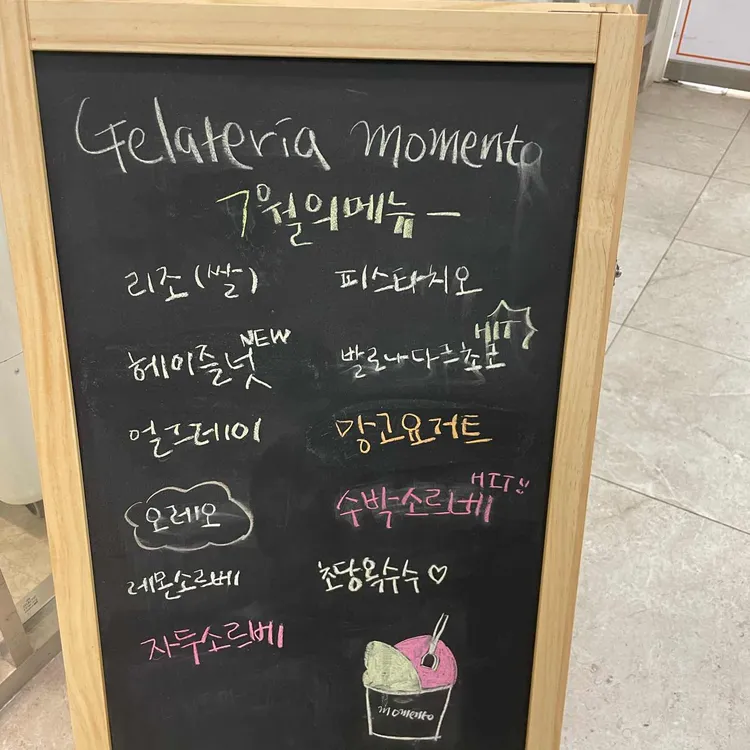 Gelateria momento
7월의메뉴 -
리조(쌀)
피스타치오
헤이즐넛 NEW
발로나다크초코 HIT
얼그레이
망고요거트
오레오
수박소르베 HIT!!
레몬소르베
초당옥수수 ♡
자두소르베
momento